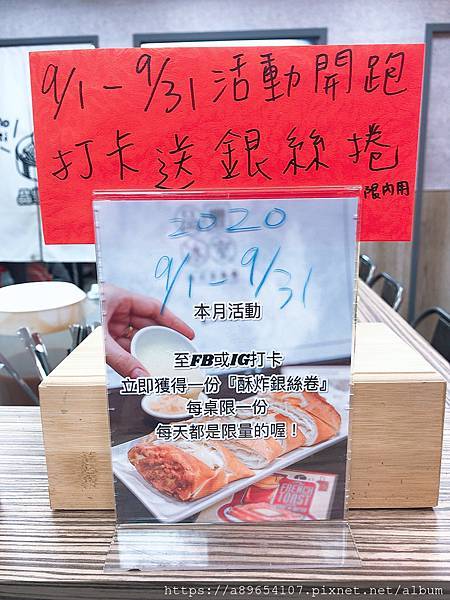 9/1-9/31活動開跑
打卡送銀絲捲
限內用
2020
9/1-9/31
本月活動
至FB或IG打卡
立即獲得一份『酥炸銀絲卷』
每桌限一份
每天都是限量的喔！
FRENCH
TOAST
https://a89654107.pixnet.net/album